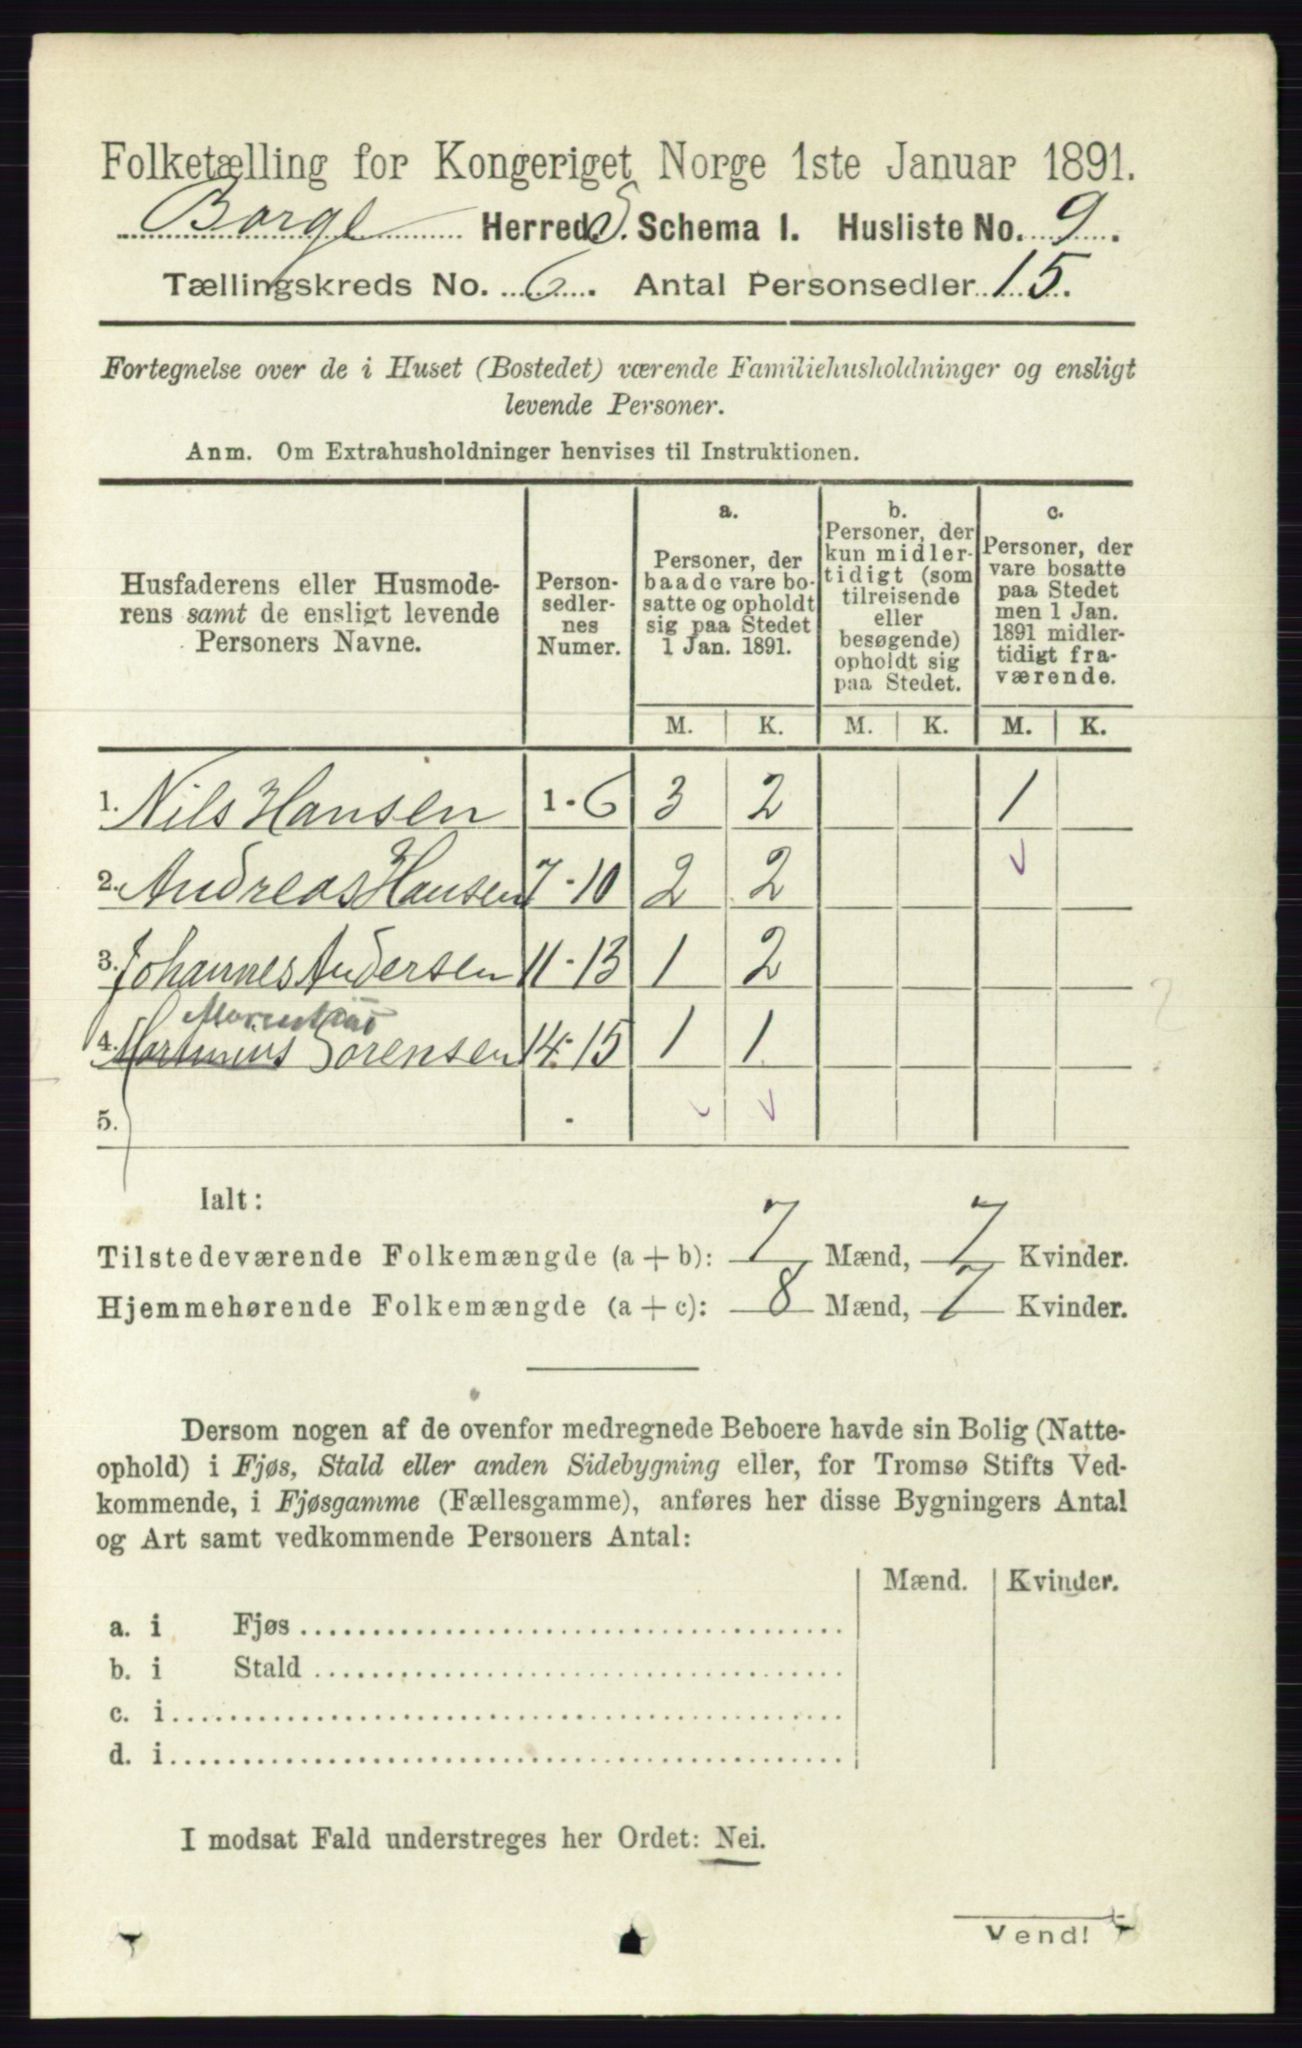 Folketælling for Kongeriget Norge 1ste Januar 1891.
Borge Herreds. Schema I. Husliste No. 9.
Tællingskreds No. 6. Antal Personsedler 15.
Fortegnelse over de i Huset (Bostedet) værende Familiehusholdninger og ensligt
levende Personer.
Anm. Om Extrahusholdninger henvises til Instruktionen.
Husfaderens eller Husmode-
rens samt de ensligt levende
Personers Navne.
Person-
sedler-
nes
Numer.
a.
Personer, der
baade vare bo-
satte og opholdt
sig paa Stedet
1 Jan. 1891.
b.
Personer, der
kun midler-
tidigt (som
tilreisende
eller
besøgende)
opholdt sig
paa Stedet.
c.
Personer, der
vare bosatte
paa Stedet
men 1 Jan.
1891 midler-
tidigt fra-
værende.
M. K. M. K. M. K.
1. Nils Hansen 1-6 3 2 1
2. Andreas Hansen 7-10 2 2
3. Johannes Andersen 11-13 1 2
4. Martinius Sorensen 14-15 1 1
5. -
Ialt:
Tilstedeværende Folkemængde (a + b): 7 Mænd, 7 Kvinder.
Hjemmehørende Folkemængde (a + c): 8 Mænd, 7 Kvinder.
Dersom nogen af de ovenfor medregnede Beboere havde sin Bolig (Natte-
ophold) i Fjøs, Stald eller anden Sidebygning eller, for Tromsø Stifts Ved-
kommende, i Fjøsgamme (Fællesgamme), anføres her disse Bygningers Antal
og Art samt vedkommende Personers Antal:
Mænd. Kvinder.
a. i Fjøs
b. i Stald
c. i
d. i
I modsat Fald understreges her Ordet: Nei.
Vend!